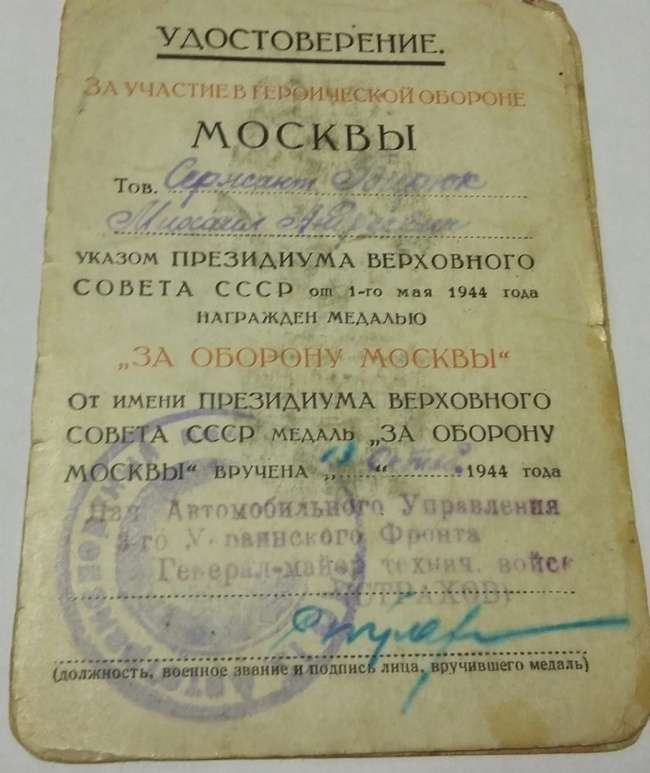 УДОСТОВЕРЕНИЕ.
ЗА УЧАСТИЕ В ГЕРОИЧЕСКОЙ ОБОРОНЕ
МОСКВЫ
Тов. Сержант
Михаил
УКАЗОМ ПРЕЗИДИУМА ВЕРХОВНОГО
СОВЕТА СССР от 1-го мая 1944 года
НАГРАЖДЕН МЕДАЛЬЮ
„ЗА ОБОРОНУ МОСКВЫ“
ОТ ИМЕНИ ПРЕЗИДИУМА ВЕРХОВНОГО
СОВЕТА СССР МЕДАЛЬ „ЗА ОБОРОНУ
МОСКВЫ“ ВРУЧЕНА „13“ 1944 года
Нач Автомобильного Управления
Украинского Фронта
Генерал-майор технич. войск
(СТРАХОВ)
(должность, военное звание и подпись лица, вручившего медаль)